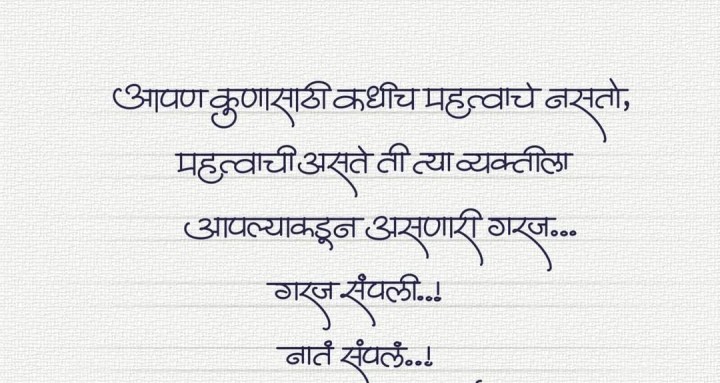 आपण कुणासाठी कधीच महत्वाचे नसतो,
महत्वाची असते ती त्या व्यक्तीला
आपल्याकडून असणारी गरज...
गरज संपली..!
नातं संपलं..!